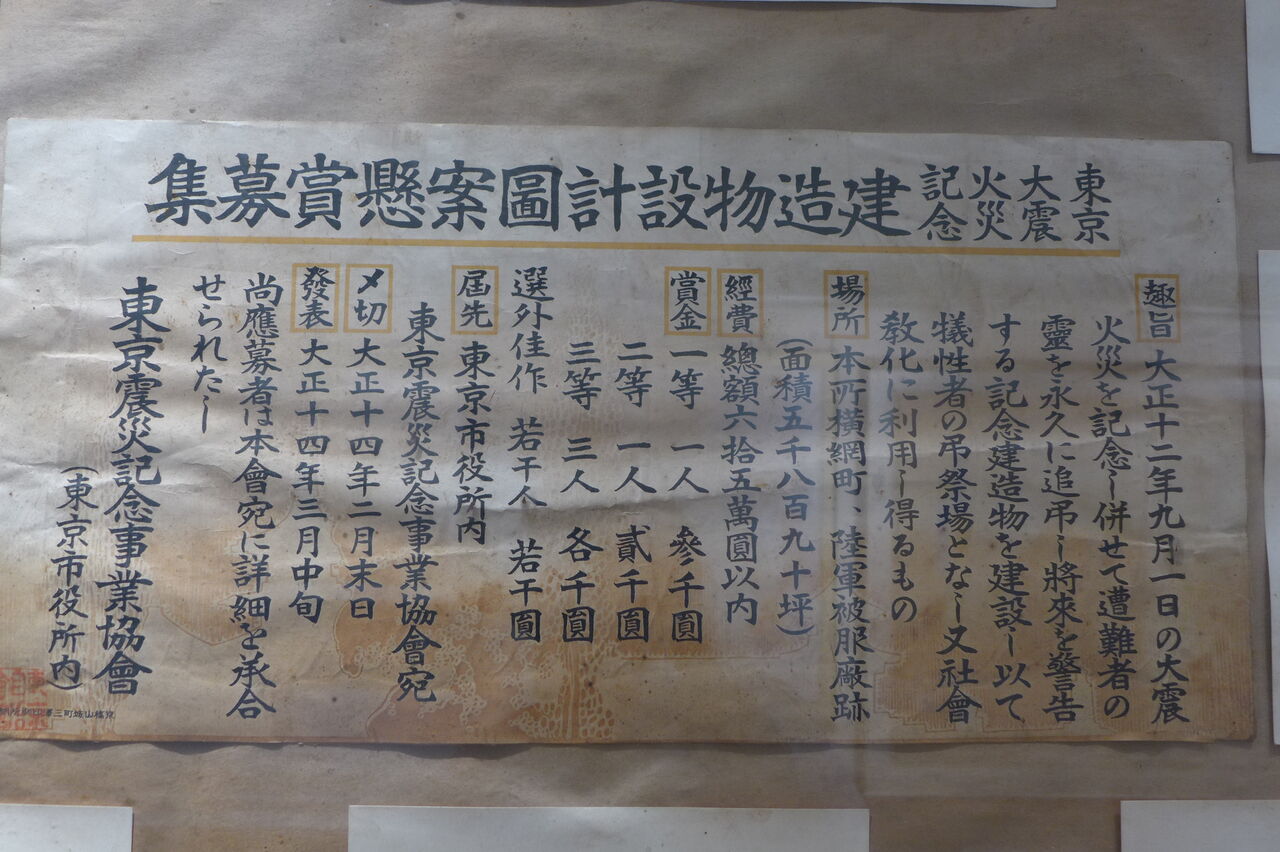 東京大震火災記念建造物設計圖案懸賞募集
趣旨 大正十二年九月一日の大震
火災を記念し併せて遭難者の
靈を永久に追弔し將來を警告
する記念建造物を建設し以て
犠性者の弔祭場となし又社會
敎化に利用し得るもの
場所 本所橫網町、陸軍被服廠跡
(面積五千八百九十坪)
經費 總額六拾五萬圓以內
賞金 一等 一人 參千圓
二等 一人 貳千圓
三等 三人 各千圓
選外佳作 若干人 若干圓
屆先 東京市役所內
東京震災記念事業協會宛
〆切 大正十四年二月末日
發表 大正十四年三月中旬
尚應募者は本會宛に詳細を承合
せられたし
東京震災記念事業協會
(東京市役所內)